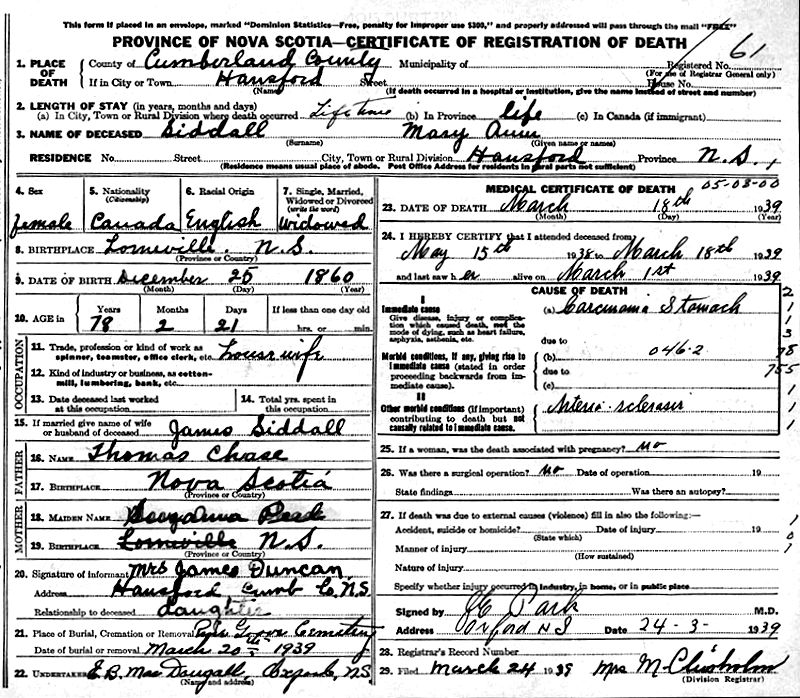 This form if placed in an envelope, marked "Dominion Statistics—Free, penalty for improper use $300," and properly addressed will pass through the mail "FREE"
PROVINCE OF NOVA SCOTIA—CERTIFICATE OF REGISTRATION OF DEATH
61
1. PLACE OF DEATH
County of Cumberland County Municipality of Registered No.
(For use of Registrar General only)
If in City or Town Hansford Street House No.
(Name) (If death occurred in a hospital or institution, give the name instead of street and number)
2. LENGTH OF STAY (in years, months and days)
(a) In City, Town or Rural Division where death occurred Lifetime (b) In Province life (c) In Canada (if immigrant)
3. NAME OF DECEASED Siddall Mary Ann
(Surname) (Given name or names)
RESIDENCE No. Street City, Town or Rural Division Hansford Province N.S.
(Residence means usual place of abode. Post Office Address for residents in rural parts not sufficient)
4. Sex
female
5. Nationality
(Citizenship)
Canada
6. Racial Origin
English
7. Single, Married, Widowed or Divorced
(write the word)
Widowed
8. BIRTHPLACE Lorneville. N.S.
(Province or Country)
9. DATE OF BIRTH December 25 1860
(Month) (Day) (Year)
10. AGE in
Years Months Days If less than one day old
78 2 21 hrs. or min.
OCCUPATION
11. Trade, profession or kind of work as spinner, teamster, office clerk, etc. housewife
12. Kind of industry or business, as cotton-mill, lumbering, bank, etc.
13. Date deceased last worked at this occupation
14. Total yrs. spent in this occupation
15. If married give name of wife or husband of deceased James Siddall
FATHER
16. NAME Thomas Chase
17. BIRTHPLACE Nova Scotia
(Province or Country)
MOTHER
18. MAIDEN NAME
19. BIRTHPLACE Lorneville N.S.
(Province or Country)
20. Signature of informant Mrs James Duncan
Address Hansford Cumb Co. N.S
Relationship to deceased daughter
21. Place of Burial, Cremation or Removal Cemetery
Date of burial or removal March 20th 1939
22. UNDERTAKER E.B. MacDougall, N.S
(Name and address)
MEDICAL CERTIFICATE OF DEATH
05-03-00
23. DATE OF DEATH March 18th 1939
(Month) (Day) (Year)
24. I HEREBY CERTIFY that I attended deceased from
May 15th 1938 to March 18th 1939
and last saw her alive on March 1st 1939
CAUSE OF DEATH
I
Immediate cause
Give disease, injury or complication which caused death, not the mode of dying, such as heart failure, asphyxia, asthenia, etc.
(a) Carcinoma Stomach
due to
Morbid conditions, if any, giving rise to immediate cause (stated in order proceeding backwards from immediate cause).
(b) 046.2
due to
(c)
II
Other morbid conditions (if important) contributing to death but not causally related to immediate cause.
Arterio-sclerosis
2
1
1
3
78
755
1
1
1
25. If a woman, was the death associated with pregnancy? no
26. Was there a surgical operation? no Date of operation 19
State findings Was there an autopsy?
27. If death was due to external causes (violence) fill in also the following:—
Accident, suicide or homicide? Date of injury 19
(State which)
Manner of injury
(How sustained)
Nature of injury
1
0
1
Specify whether injury occurred in industry, in home, or in public place
Signed by Park M.D.
Address Oxford N S Date 24-3-1939
28. Registrar's Record Number
29. Filed March 24 1939 Mrs M. Chisholm
(Division Registrar)